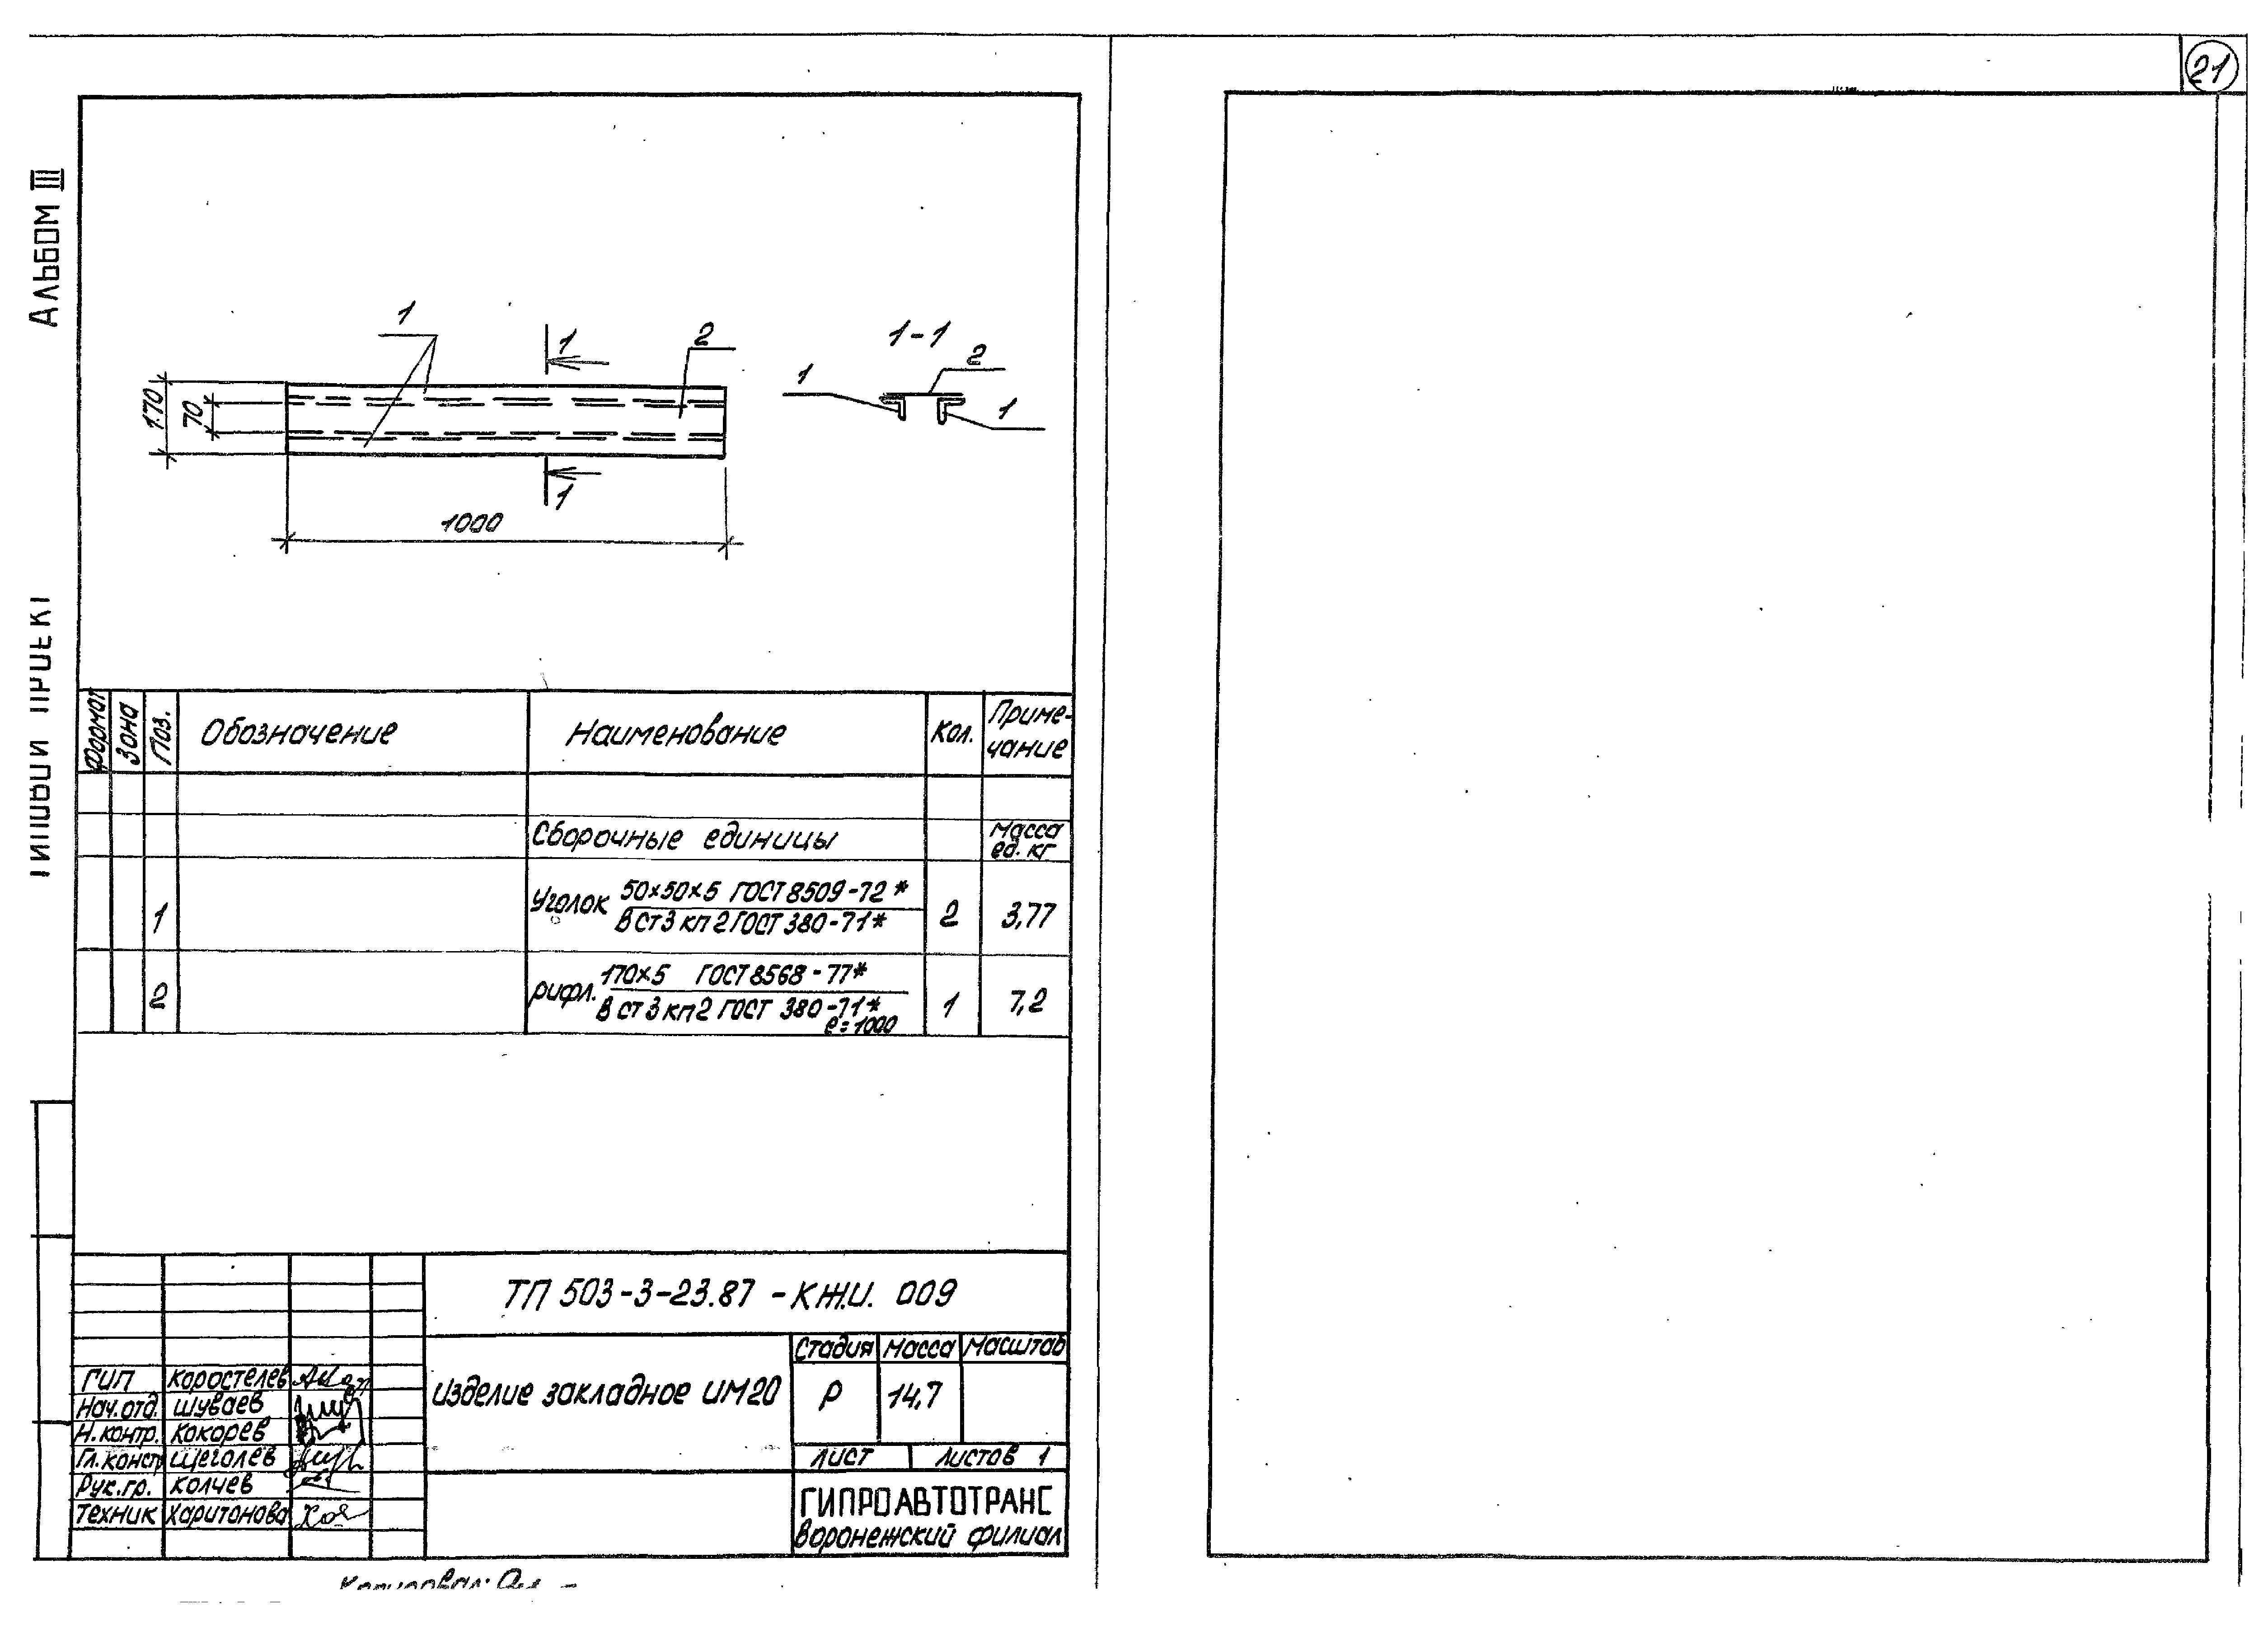 21
АЛЬБОМ III
ТИПОВОЙ ПРОЕКТ
1
1
2
1-1
1
2
1
170
70
1
1000
Формат
Зона
Поз.
Обозначение
Наименование
Кол.
Приме-
чание
Сборочные единицы
Масса
ед. кг
1
Уголок 50×50×5 ГОСТ 8509-72*
ВСт3кп2 ГОСТ 380-71*
2
3,77
2
рифл. 170×5 ГОСТ 8568-77*
ВСт3кп2 ГОСТ 380-71*
ℓ=1000
1
7,2
ТП 503-3-23.87 - КЖ.И. 009
Изделие закладное ИМ20
Стадия Масса Масштаб
Р 14,7
Лист Листов 1
ГИПРОАВТОТРАНС
Воронежский филиал
ГИП Коростелев
Нач.отд. Шуваев
Н.контр. Кокорев
Гл.констр Щеголев
Рук.гр. Колчев
Техник Харитонова
Копировал: